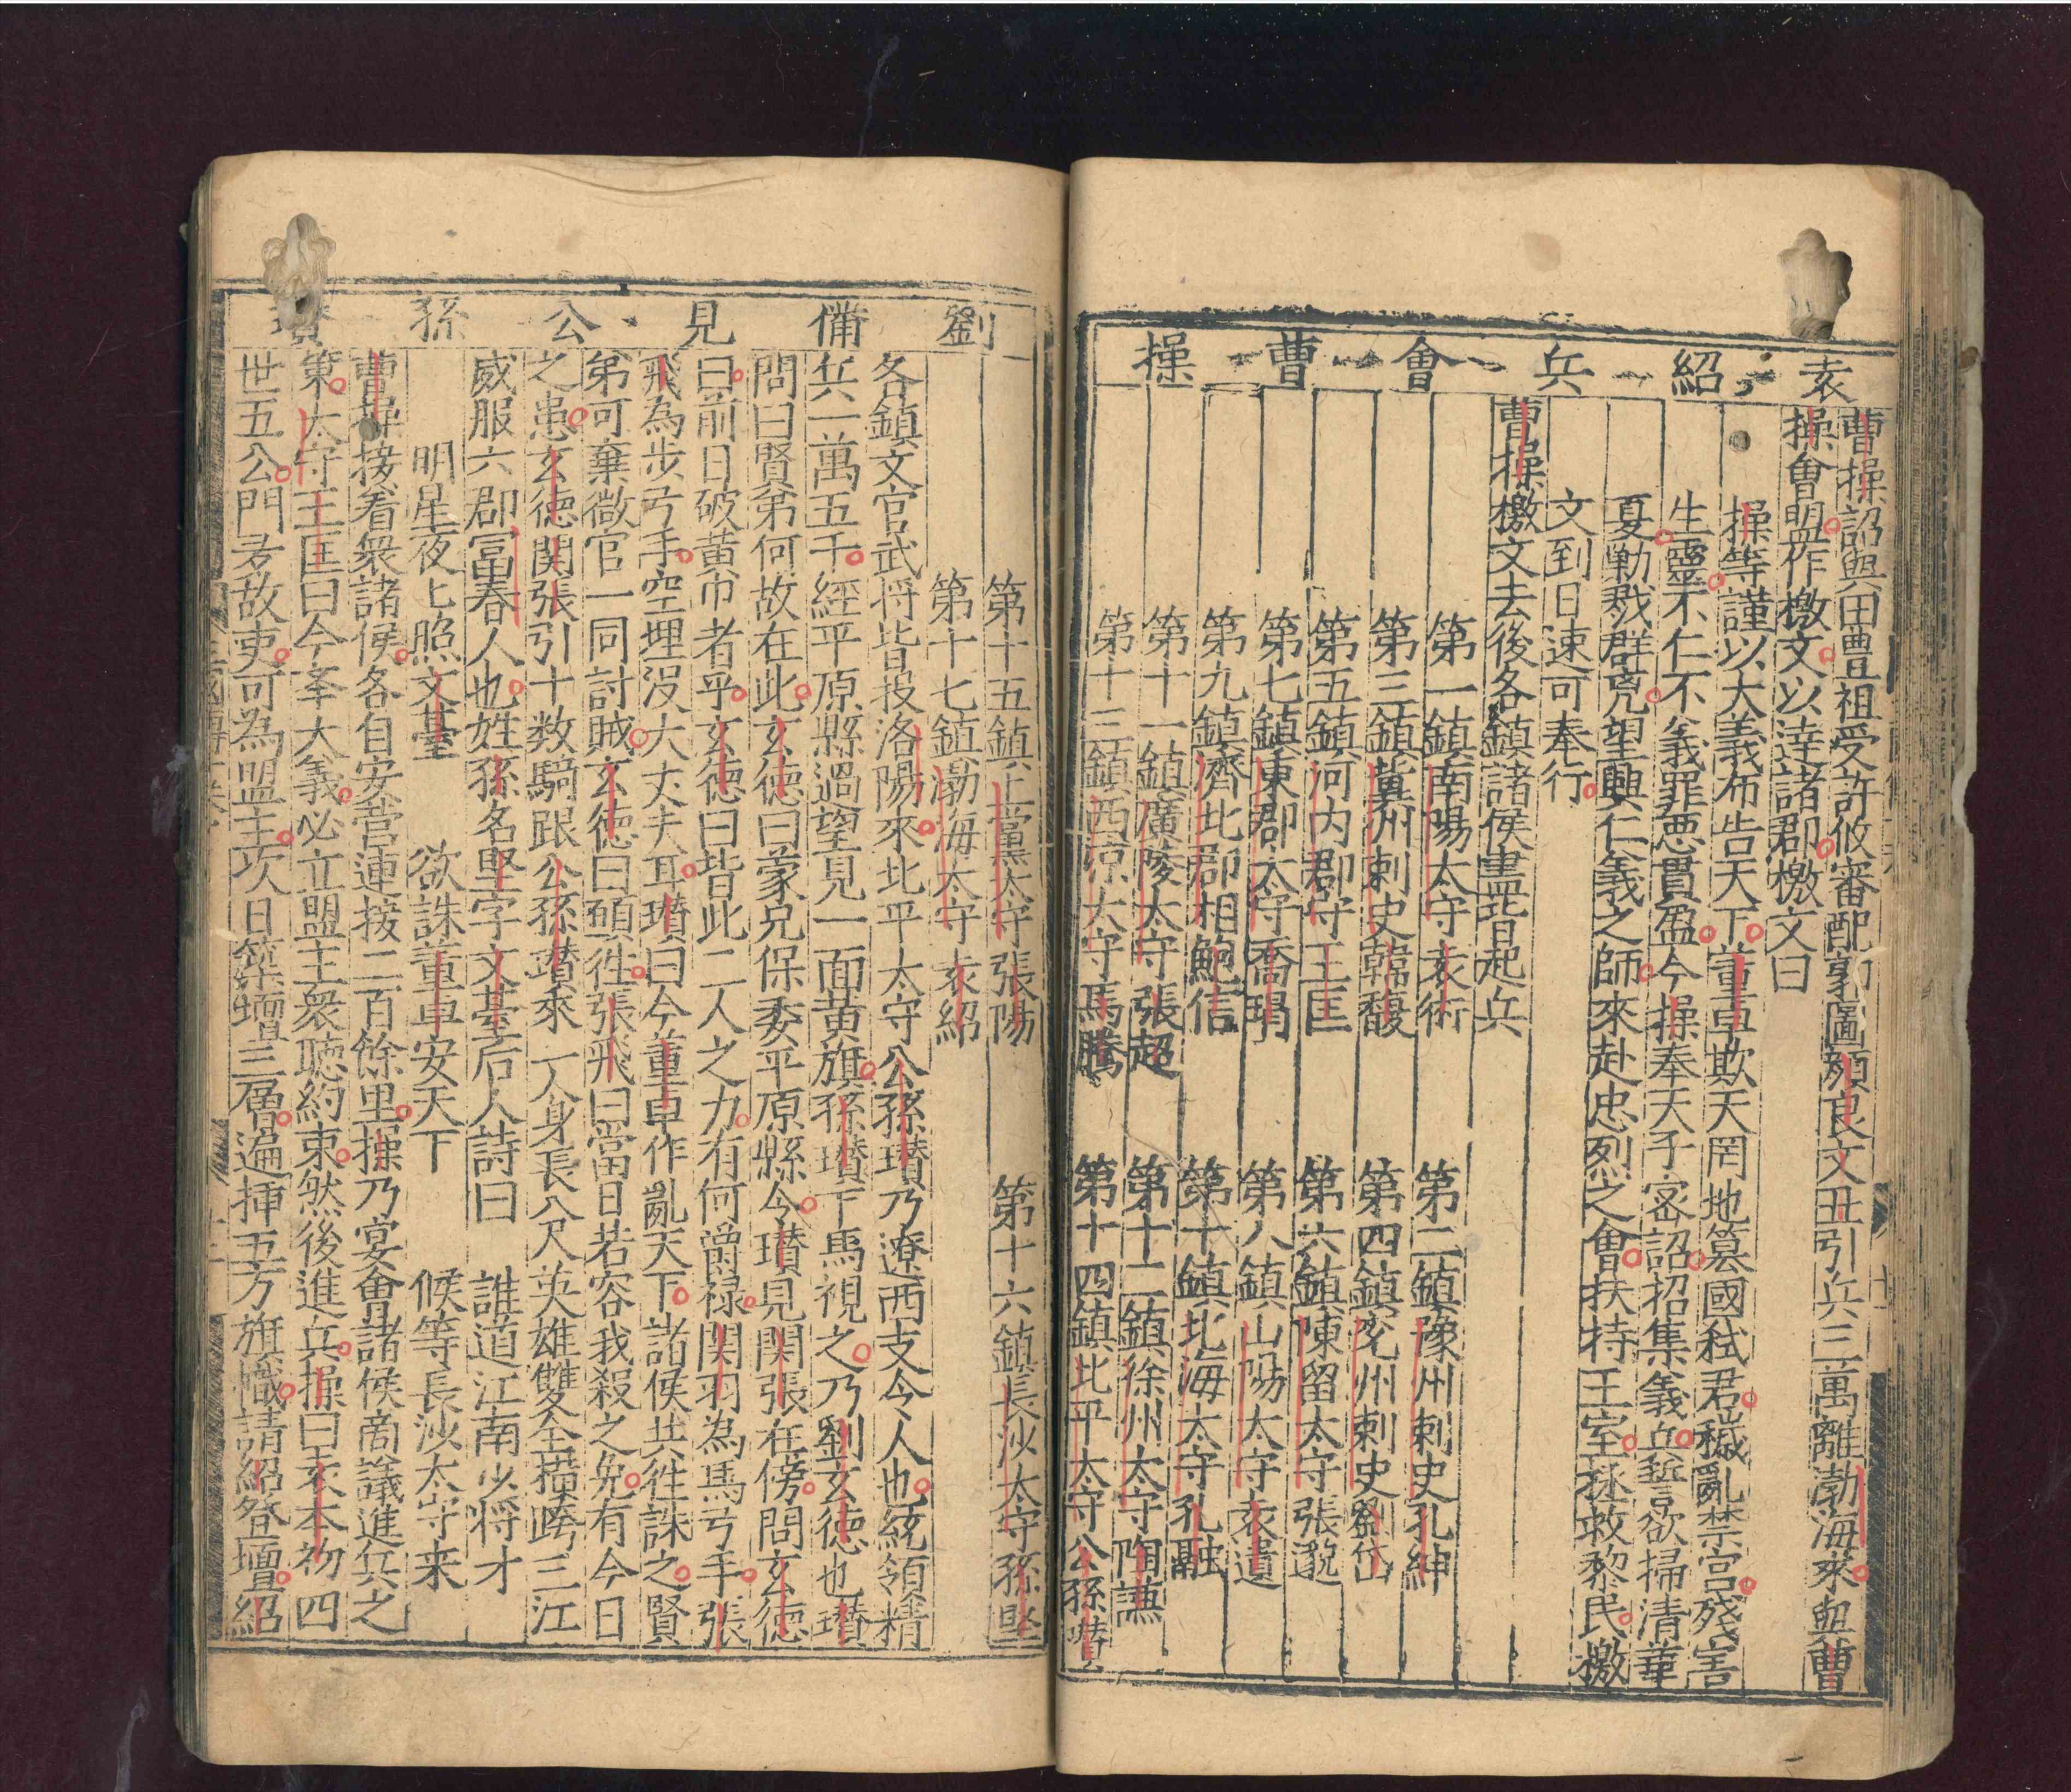 袁紹兵會曹操
曹操詔與田豊祖受許攸審配郭圖顏良文丑引兵三萬離渤海來與曹
操會盟作檄文以達諸郡檄文曰
操等謹以大義布告天下董卓欺天罔地篡國弒君穢亂禁宮殘害
生靈不仁不義罪惡貫盈今操奉天子密詔招集義兵誓欲掃清華
夏勦戮群兇望興仁義之師來赴忠烈之會扶持王室拯救黎民檄
文到日速可奉行
曹操檄文去後各鎮諸侯盡皆起兵
第一鎮南陽太守袁術 第二鎮豫州刺史孔紳
第三鎮冀州刺史韓馥 第四鎮兗州刺史劉岱
第五鎮河內郡守王匡 第六鎮陳留太守張邈
第七鎮東郡太守喬瑁 第八鎮山陽太守袁遺
第九鎮濟北郡相鮑信 第十鎮北海太守孔融
第十一鎮廣陵太守張超 第十二鎮徐州太守陶謙
第十三鎮西凉太守馬騰 第十四鎮北平太守公孫瓚
劉備見公孫瓚
第十五鎮上黨太守張陽 第十六鎮長沙太守孫堅
第十七鎮渤海太守袁紹
各鎮文官武将皆投洛陽來北平太守公孫瓚乃遼西支令人也統領精
兵一萬五千經平原縣過望見一面黃旗孫瓚下馬視之乃劉玄德也瓚
問曰賢弟何故在此玄德曰蒙兄保委平原縣令瓚見関張在傍問玄德
曰前日破黃巾者乎玄德曰皆此二人之力有何爵禄関羽為馬弓手張
飛為步弓手空埋沒大丈夫耳瓚曰今董卓作亂天下諸侯共往誅之賢
弟可棄微官一同討賊玄德曰願往張飛曰當日若容我殺之免有今日
之患玄德関張引十数騎跟公孫瓚來一人身長八尺英雄雙全橫跨三江
威服六郡冨春人也姓孫名堅字文臺后人詩曰 誰道江南少将才
明星夜上照文臺 欲誅董卓安天下 候等長沙太守来
曹操接着衆諸侯各自安營連接二百餘里操乃宴會諸侯啇議進兵之
策太守王匡曰今奉大義必立盟主衆聴約束然後進兵操曰袁本初四
世五公門多故吏可為盟主次日築壇三層遍揷五方旗幟請紹登壇紹